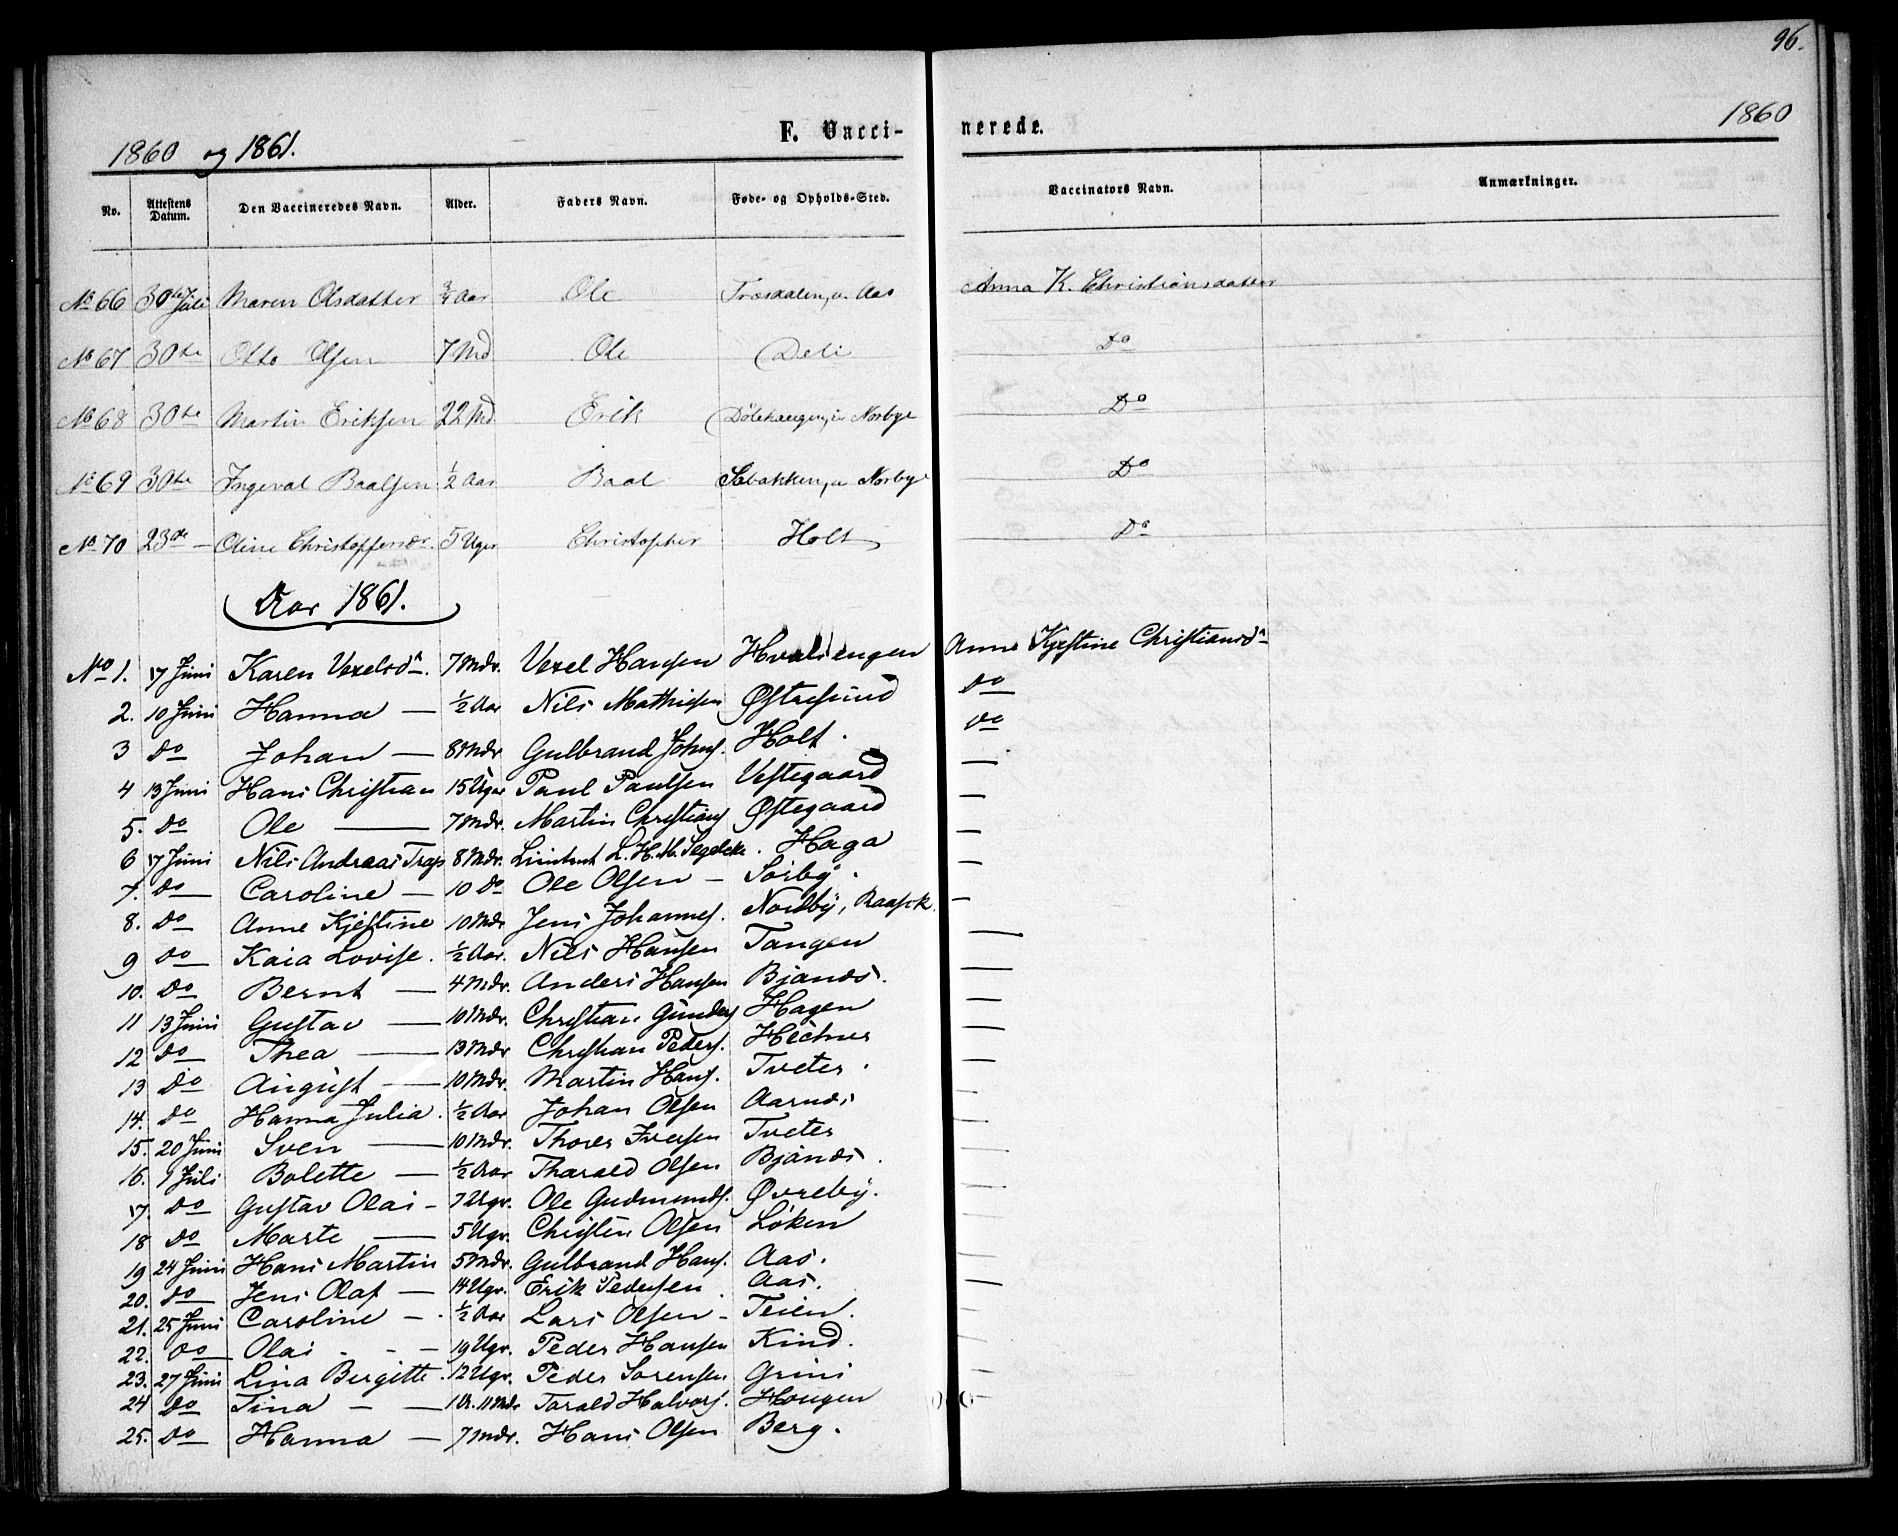 96.
1860 og 1861.
F. Vacci-
nerede.
1860
No. Attestens Datum. Den Vaccineredes Navn. Alder. Faders Navn. Føde- og Opholds-Sted. Vaccinators Navn. Anmærkninger.
No 66 30te Juli Maren Olsdatter 3/4 Aar Ole Træsdalen, u. Aas Anna K. Christiansdatter
No 67 30te Otto Olsen 7 Md Ole Deli Do
No 68 30te Martin Eriksen 22 Md Erik Norbye Do
No 69 30te Ingeval Baalsen 1/2 Aar Baal u Norbye Do
No 70 23de — Oline 5 Uger Christopher Holt Do
Aar 1861.
No 1. 17 Juni Karen Vexelsd. 7 Mdr. Vexel Hansen Anne Kjestine Christiansd.
2. 10 Juni Hanna — 1/2 Aar Nils Mathisen Østresund Do
3 Do Johan — 8 Mdr Gulbrand Johns. Holt. Do
4 13 Juni Hans Christian 15 Uger Paul Paulsen Vestegaard —
5. Do Ole — 7 Mdr. Martin Christians Østegaard —
6 17 Juni Nils Andreas Trap 8 Mdr. L. H. M. Segelcke. Haga —
7. Do Caroline — 10 Do Ole Olsen — Sørby. —
8. Do Anne Kjestine 10 Mdr Jens Johannes. Nordby, —
9 Do Kaia Lovise. 1/2 Aar. Nils Hansen Tangen —
10. Do Bernt — 4 Mdr. Anders Hansen Bjanes. —
11 13 Juni Gustav — 10 Mdr. Christian Gunders Hagen —
12 Do Thea — 13 Mdr Christian Peders. —
13 Do August — 10 Mdr. Martin Hans. Tveter. —
14. Do Hanna Julia. 1/2 Aar Johan Olsen Aarnes —
15. 20 Juni Sven — 10 Mdr. Thorer Iversen Tveter —
16. 9 Juli Bolette — 1/2 Aar Tharald Olsen Bjanes. —
17. Do Gustav Olai — 7 Ugr. Ole Gudmunds. Øvreby. —
18 Do Marte — 5 Ugr. Christen Olsen Løken —
19 24 Juni Hans Martin 5 Mdr. Gulbrand Hans. Aas. —
20. Do Jens Olaf — 14 Ugr. Erik Pedersen Aas. —
21. 25 Juni Caroline — 1/2 Aar Lars Olsen — Teien. —
22. Do Olai — 19 Ugr. Peder Hansen Kind. —
23. 27 Juni Lina Birgitte. 12 Ugr. Peder Sørensen Grini —
24 Do Tina — 1 A. 11 Mdr Tarald Halvors. Hougen —
25. Do Hanna — 7 Mdr. Hans Olsen Berg. —